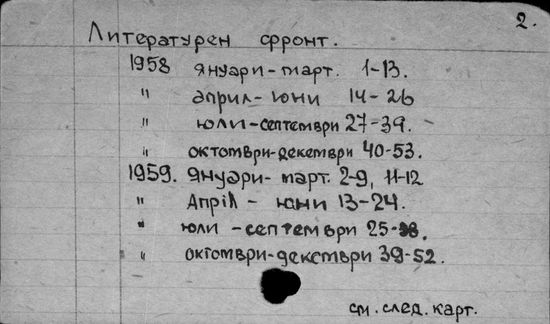 2.
Литературен фронт.
1958 януари-март. 1-13.
" април-юни 14-26
" юли-септември 27-39.
" октомври-декември 40-53.
1959. януари-март. 2-9, 11-12
" Април - юни 13-24.
" юли - септември 25-38.
" октомври-декември 39-52.
см. след. карт.